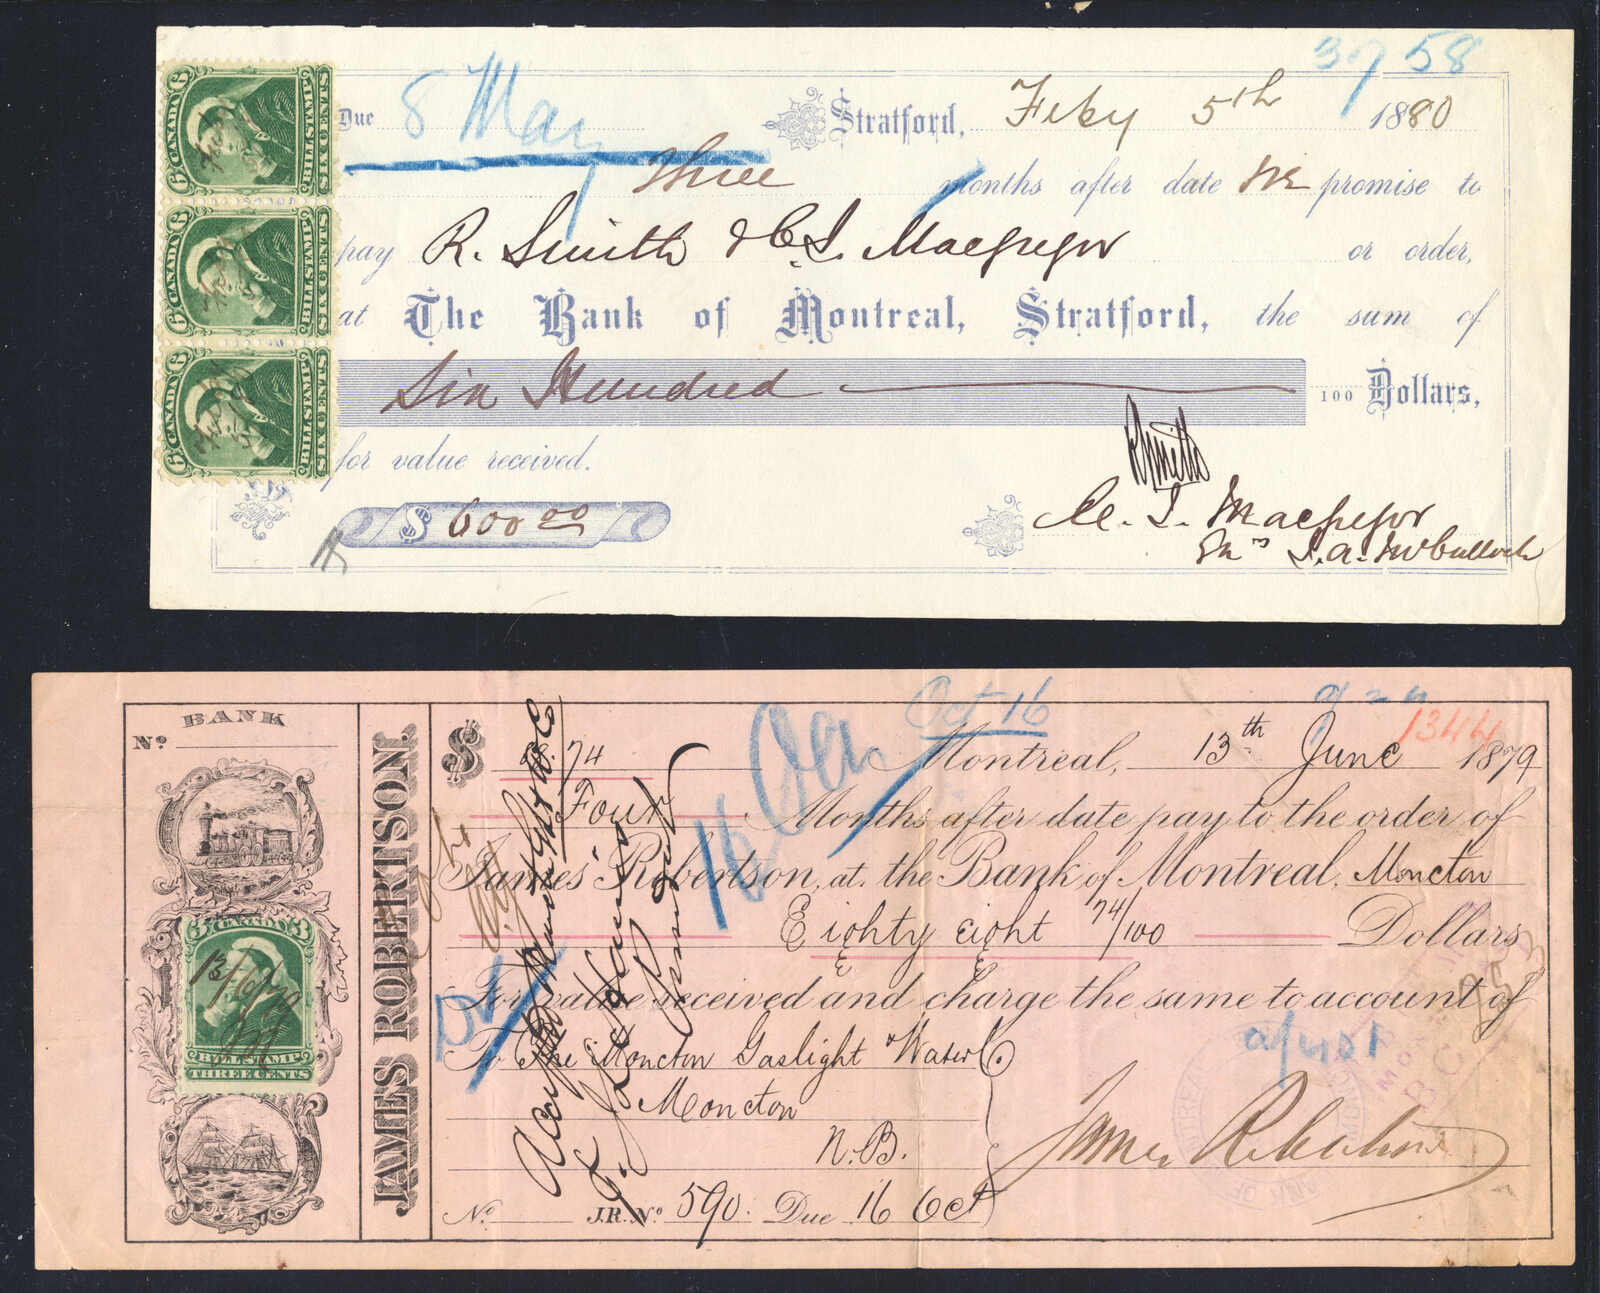 37 58
Due 8 May Stratford, Feby 5th 1880
Three months after date we promise to
pay R. Smith & C. S. Macgregor or order,
at The Bank of Montreal, Stratford, the sum of
Six Hundred 100 Dollars,
for value received.
R Smith
$ 600 00
C. S. Macgregor
J. A. McCulloch
6 CANADA 6
BILL STAMP
SIX CENTS
6 CANADA 6
BILL STAMP
SIX CENTS
6 CANADA 6
BILL STAMP
SIX CENTS
BANK
No
3 CANADA 3
BILL STAMP
THREE CENTS
JAMES ROBERTSON.
Oct 16
1344
$ 88.74 Montreal, 13th June 1879
Four Months after date pay to the order of
James Robertson, at the Bank of Montreal, Moncton
Eighty eight 74/100 Dollars
For value received and charge the same to account of
To The Moncton Gaslight & Water Co.
Moncton
N.B.
James Robertson
No J.R. No 590. Due 16 Oct
16 Oct
President